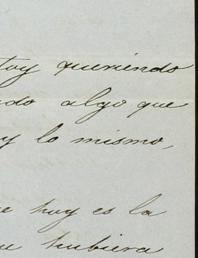 toy queriendo
ndo algo que
y lo mismo,
e hoy es la
ue hubiera